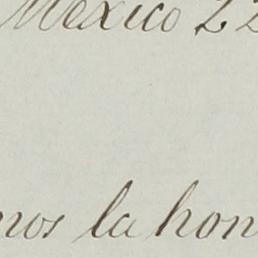 Mexico 22
mos la hon